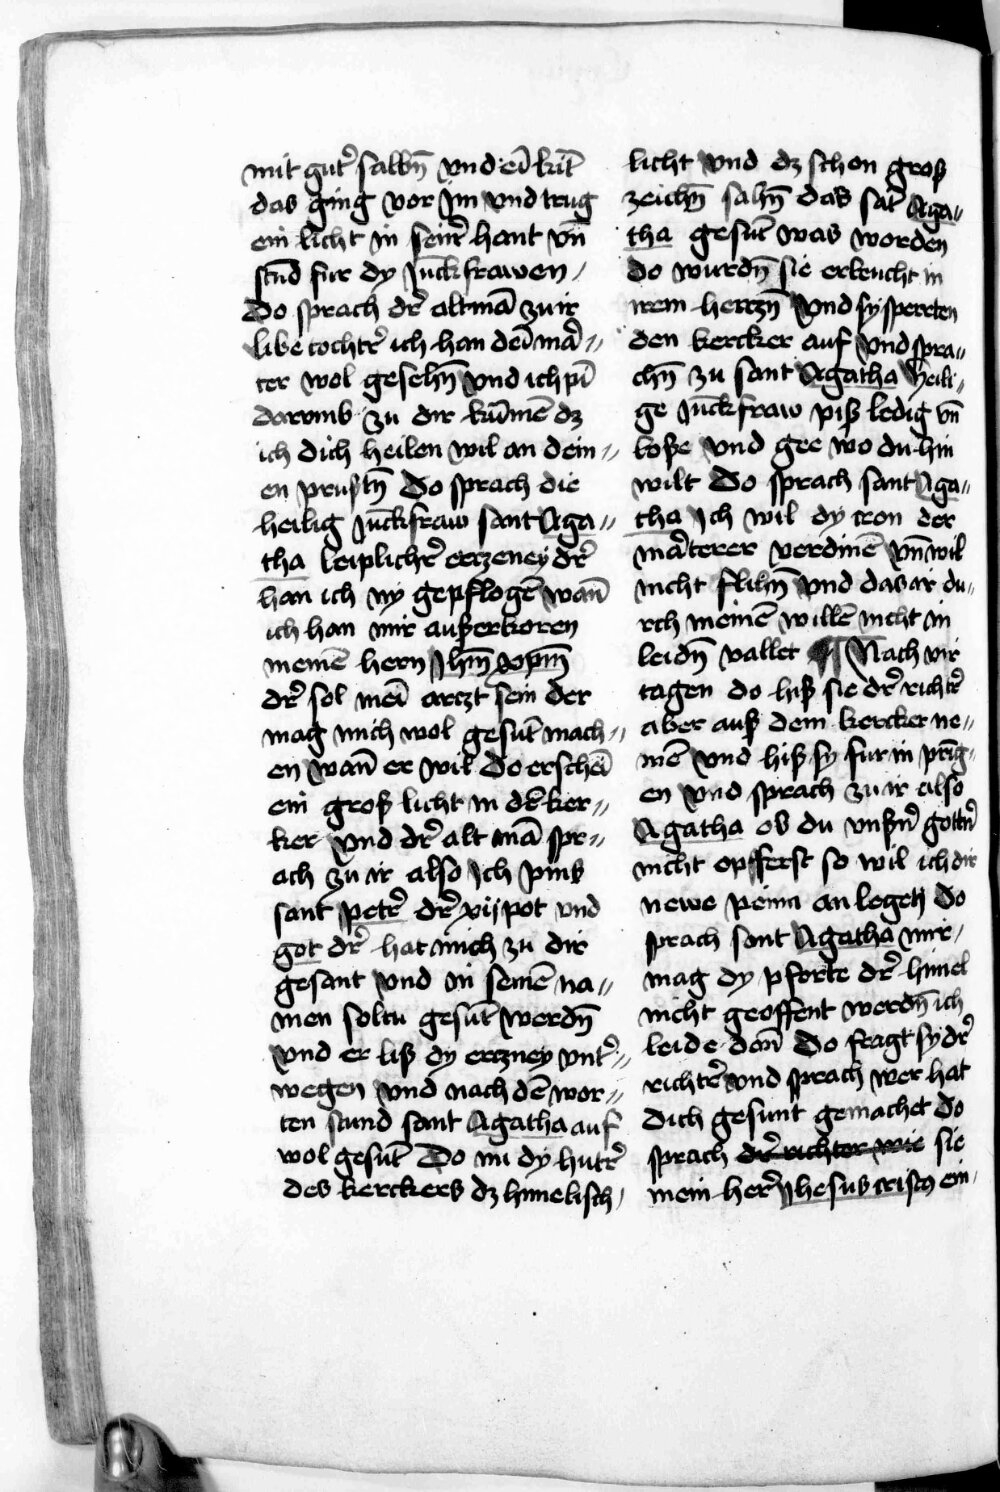 mit gut᷑ salbn̄ vnd ei kīt
das ging vor jm vnd trug
ein licht in sein᷑ hant vn̄
stūd fur dy jūckfrawen /
Do sprach dr᷑ altmā zu ir
libe tocht᷑ ich han deī mar //
ter wol gesehn̄ vnd ich pī
darvmb zu dir kūmē dz
ich dich heilen wil an dein //
en prustn̄ Do sprach die
heilig jūckfraw sant Aga //
tha leiplich᷑ erczeney dr᷑
han ich ny gepflogē wan̄
ich han mir außerkoren
meinē hern jhm̄ xpm̄
dr᷑ sol meī arczt sein der
mag mich wol gesūt mach //
en wan̄ er wil Do erscheī
ein groß licht in dē ker //
ker vnd dr᷑ alt mā spr //
ach zu ir also Ich pins
sant petr᷑ dr᷑ xijpot vnd
got dr᷑ hat mich zu dir
gesant vnd in seinē na //
men soltu gesūt werdn̄
vnd er liß dy erczney vnt᷑ //
wegen vnd nach dē wor //
ten stund sant Agatha auf
wol gesūt Do nu dy hut᷑
des kerckers dz himelisch /
licht vnd dz schon groß
zeichn̄ sahn̄ das sāt Aga //
tha gesūt was worden
do wurdn̄ sie erleucht in
irem herczn̄ vnd sy sperten
den kercker auf vnd spra //
chn̄ zu sant Agatha heili /
ge jūckfraw piß ledig vn̄
loße vnd gee wo du hin
wilt Do sprach sant Aga //
tha Ich wil dy cron der
marterer verdinē vn̄ wil
nicht flihn̄ vnd das ir du /
rch meinen willē nicht in
leidn̄ vallet ¶ Nach vir
tagen do hiß sie dr᷑ richt᷑
aber auß dem kercker ne //
mē vnd hiß sy fur in prīg /
en vnd sprach zu ir also
Agatha ob du vnßn᷑ gottn᷑
nicht opfferst so wil ich dir
newe peinn an legen Do
sprach sant Agatha mir /
mag dy pforte dr᷑ himel
nicht geoffent werdn̄ ich
leide dan̄ Do fragt sy dr᷑
richt᷑ vnd sprach wer hat
dich gesunt gemachet Do
sprach dr᷑ richter wie sie
mein her᷑ jhesus cristus ein /